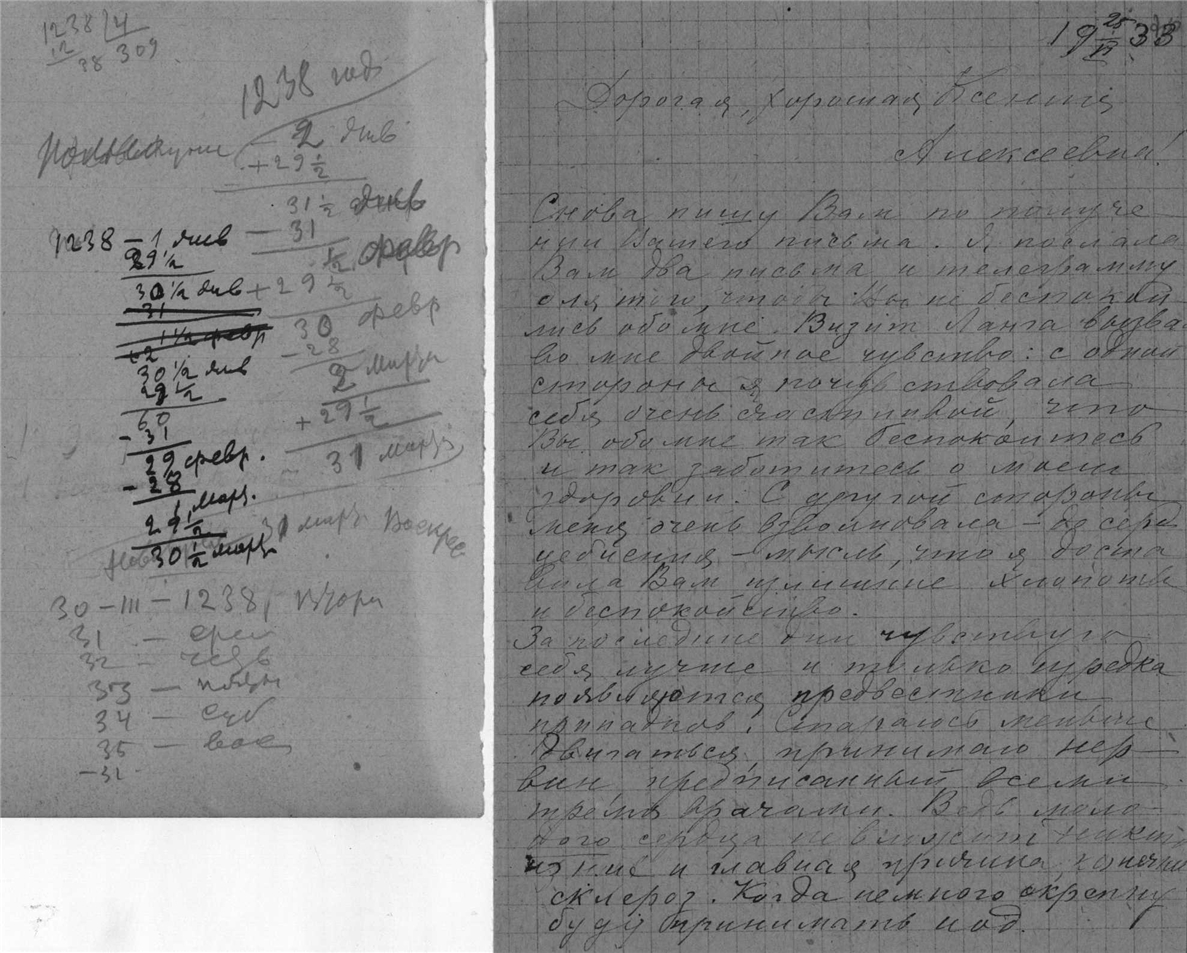 1238 | 4
12 309
38
1238 год
2 янв
+ 29 1/2
31 1/2 янв
- 31
1/2 февр
+ 29 1/2
30 февр
- 28
2 марта
+ 29 1/2
31 марта
1238 - 1 янв
29 1/2
30 1/2 янв
31
1 1/2 февр
30 1/2 янв
29 1/2
60
- 31
29 февр.
- 28
1 март.
29 1/2
30 1/2 март
31 март Воскрес
30 - III - 1238, втори
31 - сред
32 - четв
33 - пятн
34 - суб
35 - вос
19 25/VI 33
Дорогая, хорошая Ксения
Алексеевна!
Снова пишу Вам по получе
нии Вашего письма. Я послала
Вам два письма и телеграмму
для того, чтобы Вы не беспокои
лись обо мне. Визит Ланга вызвал
во мне двойное чувство: с одной
стороны я почувствовала
себя очень счастливой, что
Вы обо мне так беспокоитесь
и так заботитесь о моем
здоровии. С другой стороны
меня очень взволновала – до серд
цебиения – мысль, что я доста
вила Вам излишние хлопоты
и беспокойство.
За последние дни чувствую
себя лучше и только изредка
появляются предвестники
припадков. Стараюсь меньше
двигаться, принимаю нер–
вин, предписанный всеми
тремя врачами. Ведь моло–
дого сердца не вложит никто
из них и главная причина, конечно
склероз. Когда немного окрепну
буду принимать иод.